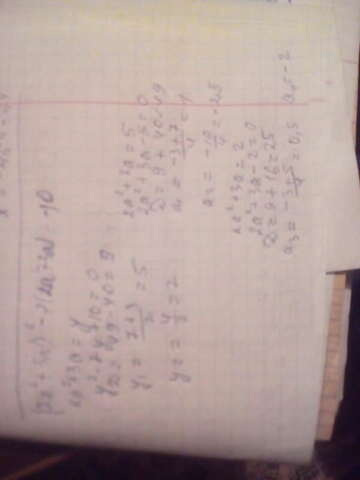 (2a²+3a)²-7(2a²+3a)=-10
2a²+3a=y
y²-7y+10=0
D=49-40=9
y₁=(7+3)/2=5
y₂=4/2=2
2a²+3a=5
2a²+3a-5=0
D=9+40=49
a₁=(-3+7)/4=1
a₂=-10/4=-2,5
2a²+3a=2
2a²+3a-2=0
D=9+16=25
a₃=(-3+5)/4=0,5 a₄=-2